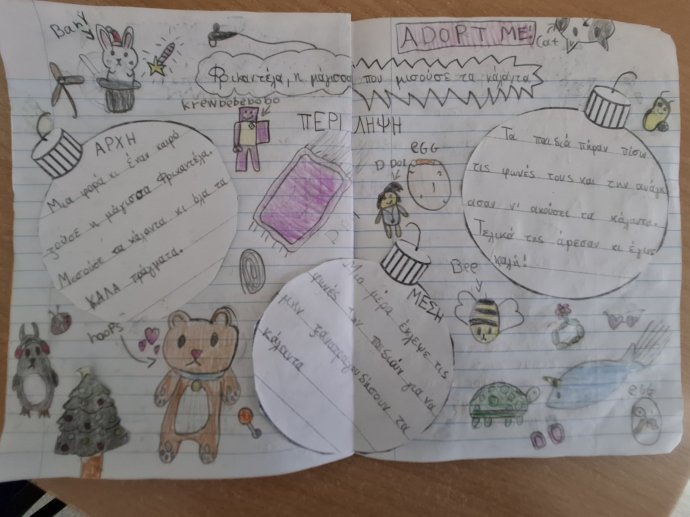 Bany
ADOPT ME
Cat
Φρικαντέλα, η μάγισσα που μισούσε τα κάλαντα
krewbebebobo
ΠΕΡΙΛΗΨΗ
ΑΡΧΗ
Μια φορά κι έναν καιρό
ζούσε η μάγισσα Φρικαντέλα.
Μισούσε τα κάλαντα κι όλα τα
ΚΑΛΑ πράγματα.
egg
ΜΕΣΗ
Μια μέρα έκλεψε τις
φωνές των παιδιών για να
μην ξανατραγουδήσουν τα
κάλαντα
Τα παιδιά πήραν πίσω
τις φωνές τους και την ανάγκ
ασαν ν' ακούσει τα κάλαντα.
Τελικά της άρεσαν κι έγινε
καλή!
Bee
hoops
egg